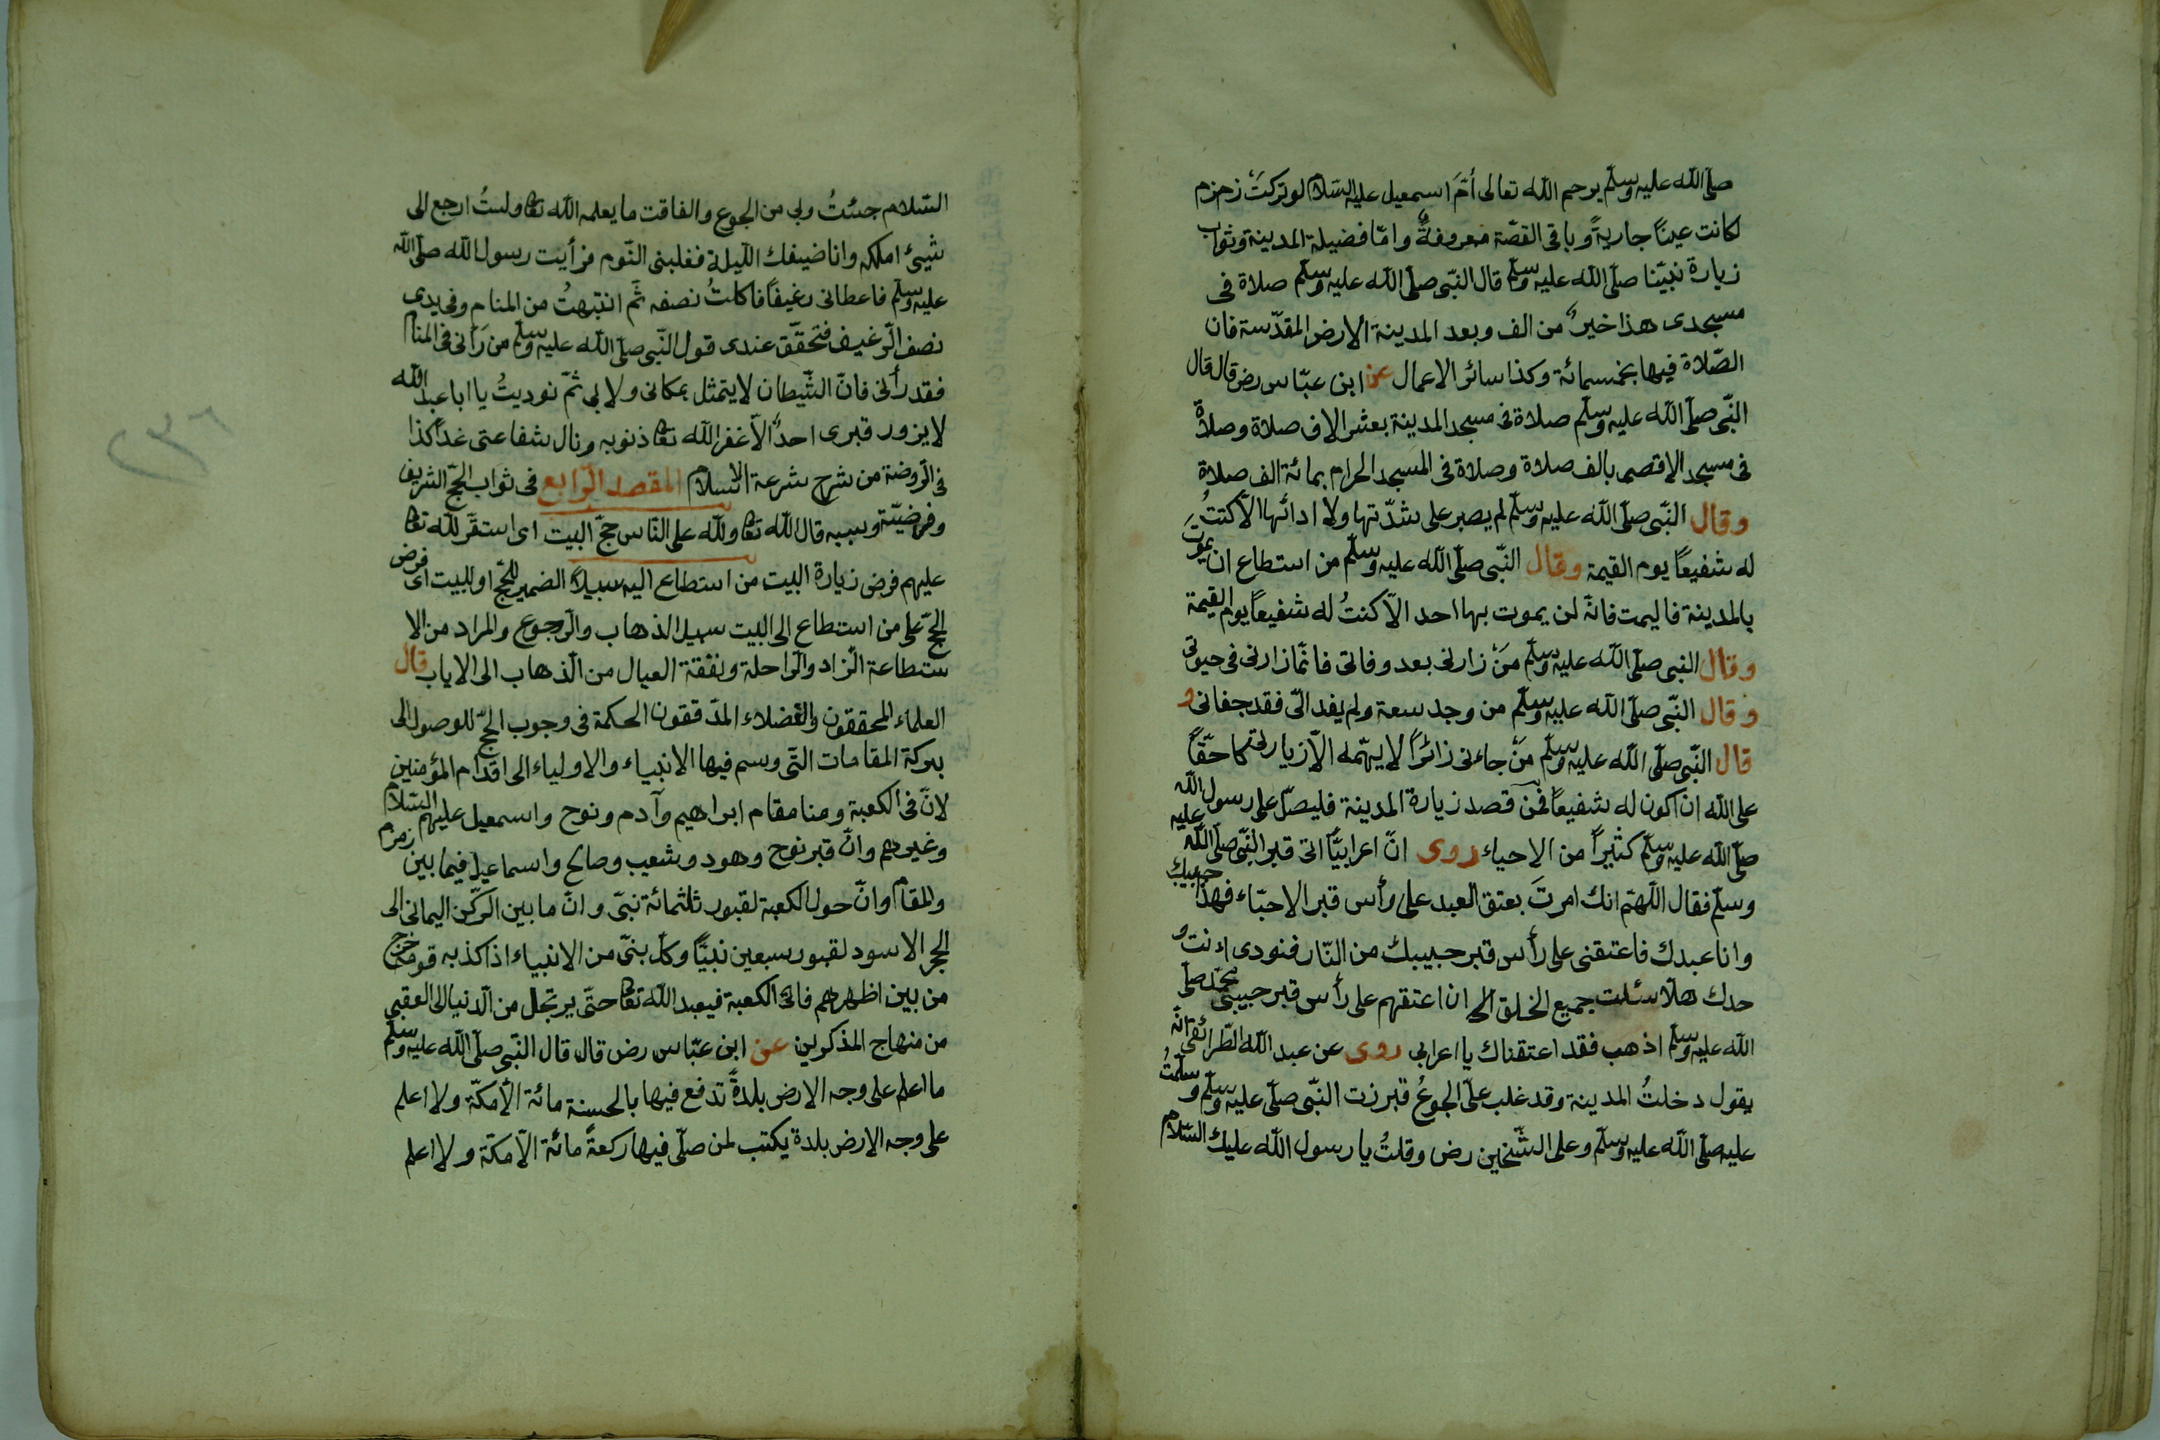 صلّى الله عليه وسلّم يرحم الله تعالى أمّ اسمعيل عليه السّلام لو تركتْ زمزم
لكانت عينًا جاريةً وباقى القصّة معروفةٌ وامّا فضيلة المدينة وثواب
زيارة نبيّنا صلّى الله عليه وسلّم قال النّبى صلّى الله عليه وسلّم صلاة فى
مسجدى هذا خيرٌ من الف وبعد المدينة الارض المقدّسة فان
الصّلاة فيها بخمسمائة وكذا سائر الاعمال عن ابن عبّاس رض قال قال
النّبى صلّى الله عليه وسلّم صلاة فى مسجد المدينة بعشر الاف صلاة وصلاة
فى مسجد الاقصى بالف صلاة وصلاة فى المسجد الحرام بمائة الف صلاة
وقال النّبى صلّى الله عليه وسلّم لم يصبر على شدّتها ولا ادائها الاّ كنتُ
له شفيعًا يوم القيمة وقال النّبى صلّى الله عليه وسلّم من استطاع ان يموت
بالمدينة فاليمت فانّه لن يموت بها احد الاّ كنتُ له شفيعًا يوم القيمة
وقال النبى صلّى الله عليه وسلّم مَنْ زارنى بعد وفاتى فانّما زارنى فى حيوتى
وقال النّبى صلّى الله عليه وسلّم من وجد سعة ولم يفد الىّ فقد جفانى و
قال النّبى صلّى الله عليه وسلّم مَنْ جاءنى زائرًا لا يهمّه الاّ زيارتى كان حقّاً
على الله ان اكون له شفيعًا فمن قصد زيارة المدينة فليصلّ على رسول الله
صلّى الله عليه وسلّم كثيراً من الاحياء روى انّ اعرابيّاً اتى قبر النّبى صلّى الله عليه
وسلّم فقال اللّهمّ انك امرتَ بعتق العبد على رأس قبر الاحبّاء فهذا حبيبك
وانا عبدك فاعتقنى على رأس قبر حبيبك من النّار فنودى اءنت و
حدك هلّا سئلت جميع الخلق ان اعتقهم على رأس قبر حبيبى محمّد صلّى
الله عليه وسلّم اذهب فقد اعتقناك يا اعرابى روى عن عبد الله الطّرائفى انّه
يقول دخلتُ المدينة وقد غلب علىّ الجوعُ فبرزت النّبى صلّى عليه وسلّم وسلّمتُ
عليه صلّى الله عليه وسلّم وعلى الشّيخين رض وقلتُ يا رسول الله عليك السّلام
السّلام جئتُ ولى من الجوع والفاقت ما يعلمه الله تعا ولستُ ارجع الى
شيئ املكه وانا ضيفك اللّيلة فغلبنى النّوم فرأيت رسول الله صلّى الله
عليه وسلّم فاعطانى رغيفًا فاكلتُ نصفه ثمّ انتبهتُ من المنام وفى يدى
نصف الرّغيف فتحقّق عندى قول النّبى صلّى الله عليه وسلّم من رَأنى فى المنام
فقد رأنى فانّ الشّيطان لا يتمثل بمكانى ولا بى ثمّ نوديتُ يا ابا عبد الله
لا يزور قبرى احدٌ الاّ غفر الله تعا ذنوبه ونال شفاعتى غدًا كذا
فى الرّوضة من شرح شرعة الاسلام المقصد الرّابع فى ثواب الحجّ الشريف
وفرضيّته وسببه قال الله تعا ولله على النّاس حجّ البيت اى استقرّ لله تعا
عليهم فرض زيارة البيت من استطاع اليه سبيلاً الضمير للحجّ او للبيت اى فرض
الحجّ على من استطاع الى البيت سبيل الذهاب والرّجوع والمراد من الا
ستطاعة الزاد والرّاحلة ونفقة العيال من الذهاب الى الاياب قال
العلماء المحققون والفضلاء المدّققون الحكمة فى وجوب الحجّ للوصول الى
بركة المقامات الّتى وسم فيها الانبياء والاولياء الى اقدام المؤمنين
لانّ فى الكعبة ومنا مقام ابراهيم وآدم ونوح واسمعيل عليهم السّلام
وغيرهم وانّ قبر نوح وهود وشعيب وصالح واسماعيل فيما بين زمزم
والمقام وانّ حول الكعبة لقبور ثلثمائة نبىّ وانّ ما بين الركن اليمانى الى
الحجر الاسود لقبور سبعين نبيّاً وكلّ بنىّ من الانبياء اذا كذبه قومه خرج
من بين اظهرهم فاتى الكعبة فيعبد الله تعا حتّى يرتحل من الدّنيا الى العقبى
من منهاج المذكرين عن ابن عبّاس رض قال قال النّبى صلّى الله عليه وسلّم
ما اعلم على وجه الارض بلدةً تدفع فيها بالحسنة مائة الاّ مكّة ولا اعلم
على وجه الارض بلدة يكتب لمن صلّى فيها ركعةً مائة الاّ مكّة ولا اعلم